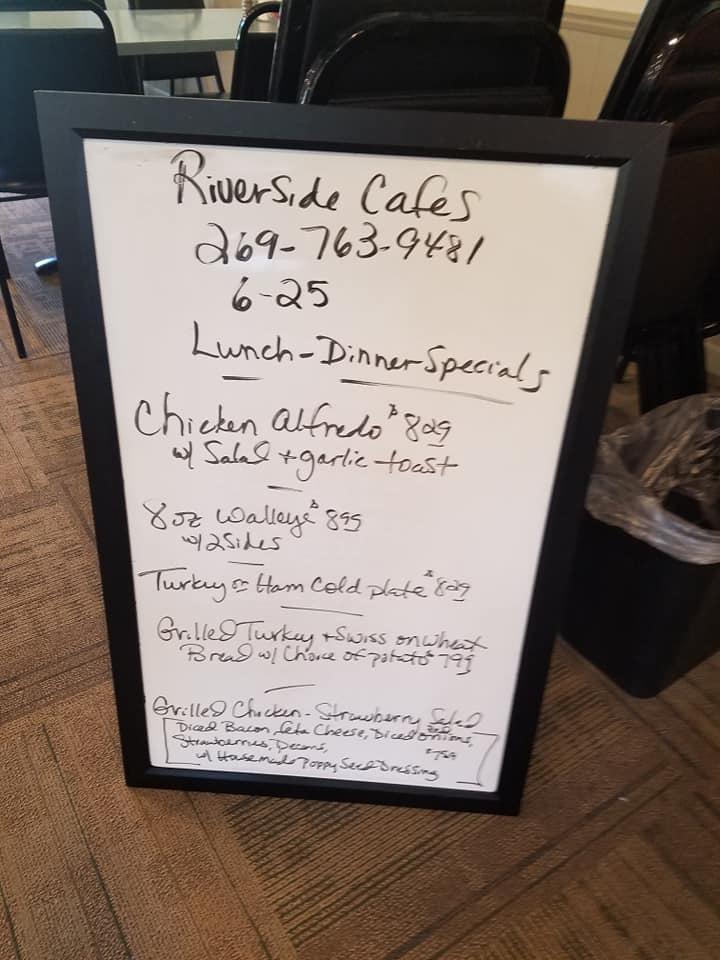 Riverside Cafes
269-763-9481
6-25
Lunch-Dinner Specials
Chicken Alfredo $829
w/ Salad + garlic toast
8oz Walleye $899
w/ 2 Sides
Turkey or Ham Cold plate $829
Grilled Turkey + Swiss on wheat
Bread w/ Choice of potato $799
Grilled Chicken - Strawberry Salad
Diced Bacon, feta Cheese, Diced Red onions,
Strawberries, Pecans, $759
w/ Housemade Poppy Seed Dressing